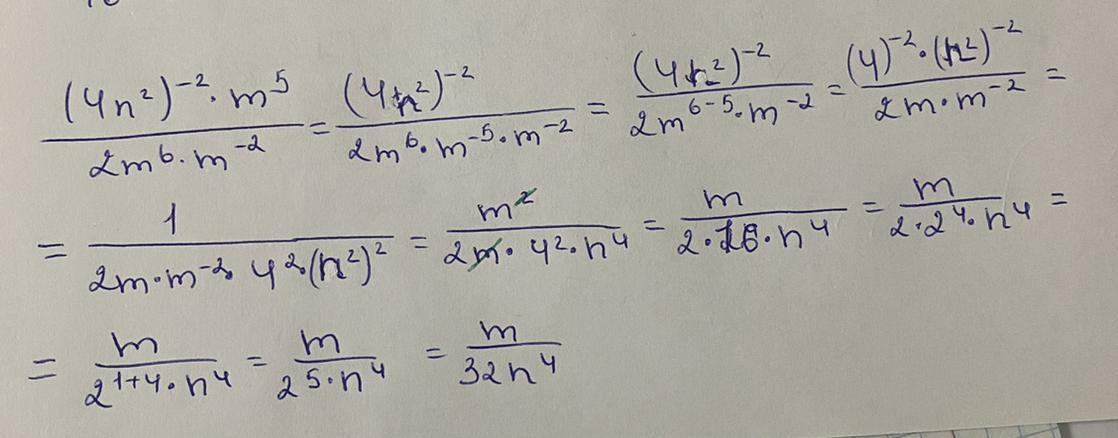 (4n²)⁻²·m⁵/2m⁶·m⁻² = (4n²)⁻²/2m⁶·m⁻⁵·m⁻² = (4n²)⁻²/2m⁶⁻⁵·m⁻² = (4)⁻²·(n²)⁻²/2m·m⁻² =
= 1/2m·m⁻²·4²·(n²)² = m²/2m·4²·n⁴ = m/2·16·n⁴ = m/2·2⁴·n⁴ =
= m/2¹⁺⁴·n⁴ = m/2⁵·n⁴ = m/32n⁴